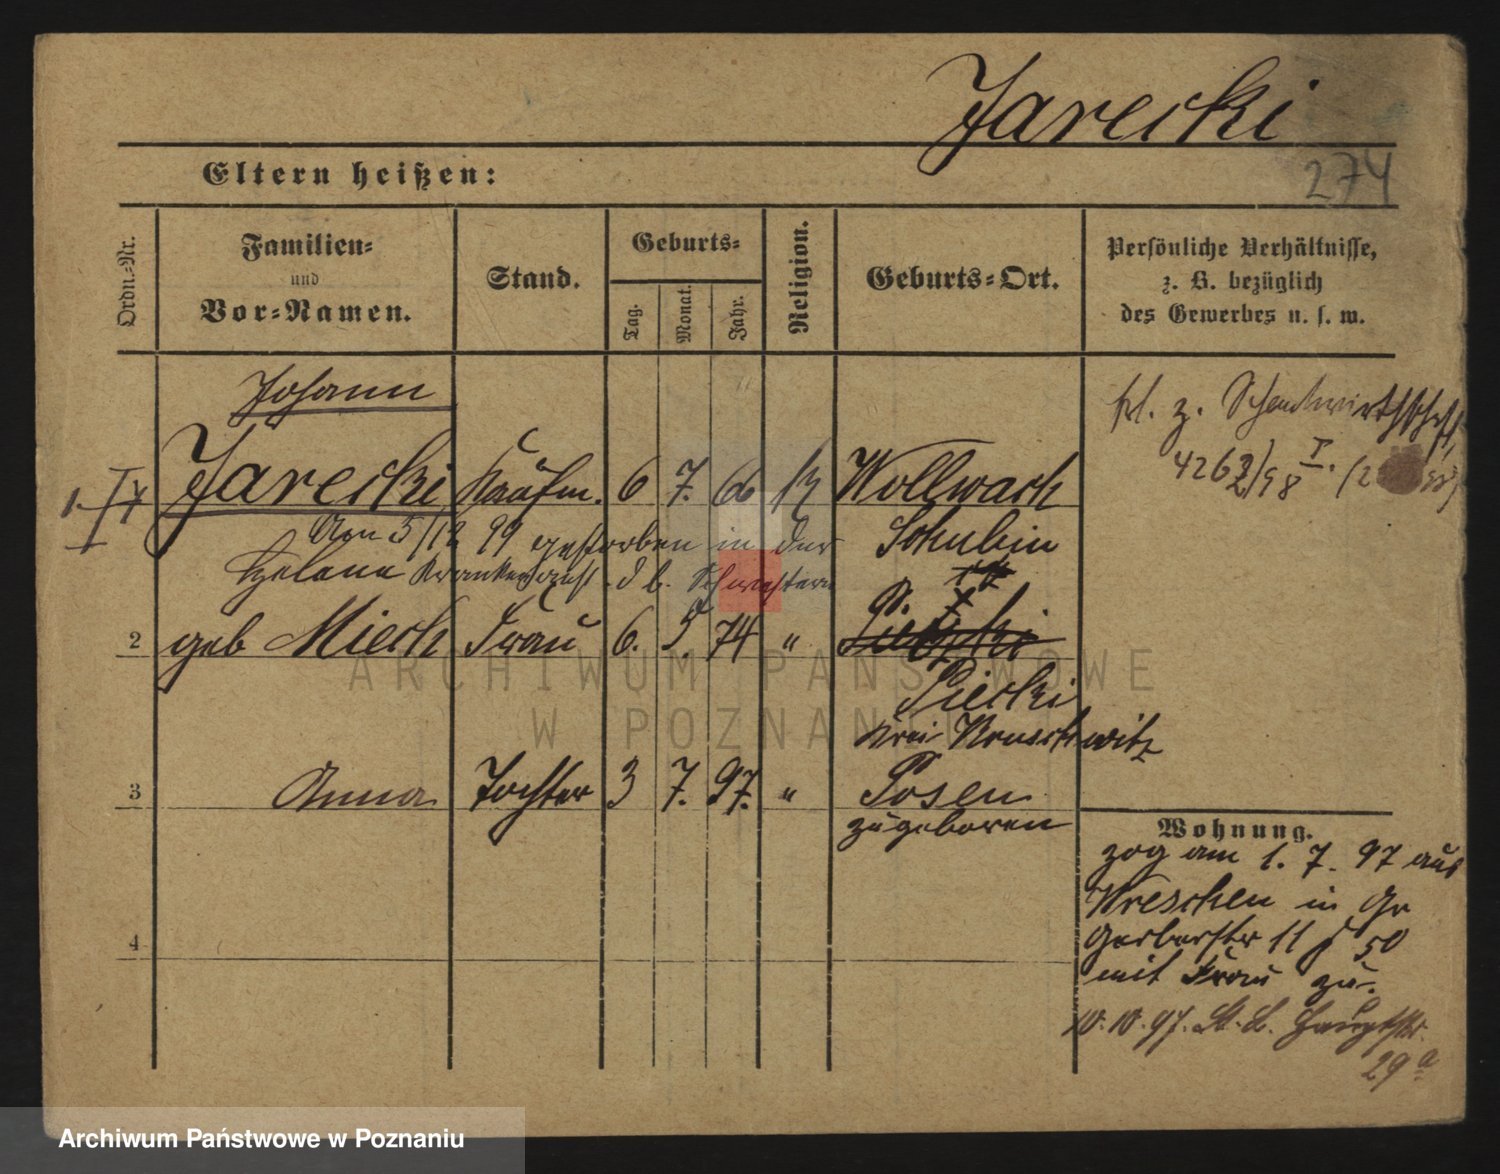 Jarecki
274
Eltern heißen:
Ordn.-Nr.
Familien-
und
Vor-Namen.
Stand.
Geburts-
Tag.
Monat.
Jahr.
Religion.
Geburts-Ort.
Persönliche Verhältnisse,
z. B. bezüglich
des Gewerbes u. s. w.
Johann
1. Jarecki Kaufm. 6 7. 66 k Wollwach
z. Schankwirthschaft
4262/98 I.
Am 5/12 99 gestorben in der Schubin
Helene Krankenanst. d. b. Schwestern
2 geb Miech Frau 6. 5. 74 "
Piecki
Krei Kruschwitz
3 Anna Tochter 3 7. 97. " Posen
zugeboren
Wohnung.
zog am 1. 7. 97 aus
Wreschen in Gr
Gerberstr 11 50
mit Frau zu.
10. 10. 97. St. L. Hauptstr.
29a
4
ARCHIWUM PAŃSTWOWE
W POZNANIU
Archiwum Państwowe w Poznaniu